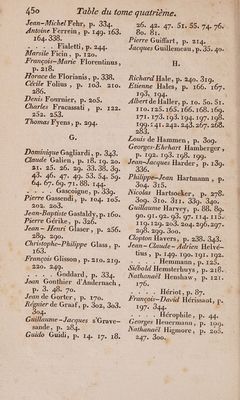 450 Table du tome quatrième.
Jean-Michel Fehr, p. 334.
Antoine Ferrein, p. 149. 163.
164. 338.
. . . . Fialetti, p. 244.
Marsile Ficin, p. 120.
François-Marie Florentinus,
p. 218.
Horace de Florianis, p. 338.
Cécile Folius, p. 103. 210.
286.
Denis Fournier, p. 205.
Charles Fracassati, p. 122.
252. 253.
Thomas Fyens, p. 294.
G.
Dominique Gagliardi, p. 343.
Claude Galien, p. 18. 19. 20.
21. 25. 26. 29. 33. 38. 39.
43. 46. 47. 49. 53. 54. 59.
64. 67. 69. 71. 88. 144.
. . . . Gascoigne, p. 339.
Pierre Gassendi, p. 104. 105.
202. 203.
Jean-Baptiste Gastaldy, p. 160.
Pierre Gérike, p. 336.
Jean-Henri Glaser, p. 256.
289. 290.
Christophe-Philippe Glass, p.
163.
François Glisson, p. 210. 219.
220. 249.
. . . . Goddard, p. 334.
Jean Gonthier d'Andernach,
p. 3. 48. 70.
Jean de Gorter, p. 170.
Régnier de Graaf, p. 302, 303.
304.
Guillaume-Jacques s'Grave-
sande, p. 284.
Guido Guidi, p. 14. 17. 18.
26. 42. 47. 51. 55. 74. 76.
80. 81.
Pierre Guiffart, p. 214.
Jacques Guillemeau, p. 35. 40.
H.
Richard Hale, p. 240. 319.
Etienne Hales, p. 166. 167.
193. 194.
Albert de Haller, p. 10. 50. 51.
110. 125. 165. 166. 168. 169.
171. 173. 193. 194. 197. 198.
199. 241. 242. 243. 267. 268.
283.
Louis de Hammen, p. 309.
Georges-Ehrhart Hamberger,
p. 192. 193. 198. 199.
Jean-Jacques Harder, p. 139.
336.
Philippe-Jean Hartmann, p.
304. 315.
Nicolas Hartsoeker, p. 278.
309. 310. 331. 339. 340.
Guillaume Harvey, p. 88. 89.
90. 91. 92. 93. 97. 114. 115.
119. 129. 203. 204. 296. 297.
298. 299. 300.
Clopton Havers, p. 238. 343.
Jean-Claude-Adrien Helvé-
tius, p. 149. 190. 191. 192.
. . . . Hemmann, p. 125.
Siébold Hemsterhuys, p. 218.
Nathanaël Henshaw, p. 121.
176.
. . . . Hériot, p. 87.
François-David Hérissant, p.
197. 344.
. . . . Hérophile, p. 44.
Georges Heuermann, p. 199.
Nathanaël Highmore, p. 205.
247. 300.